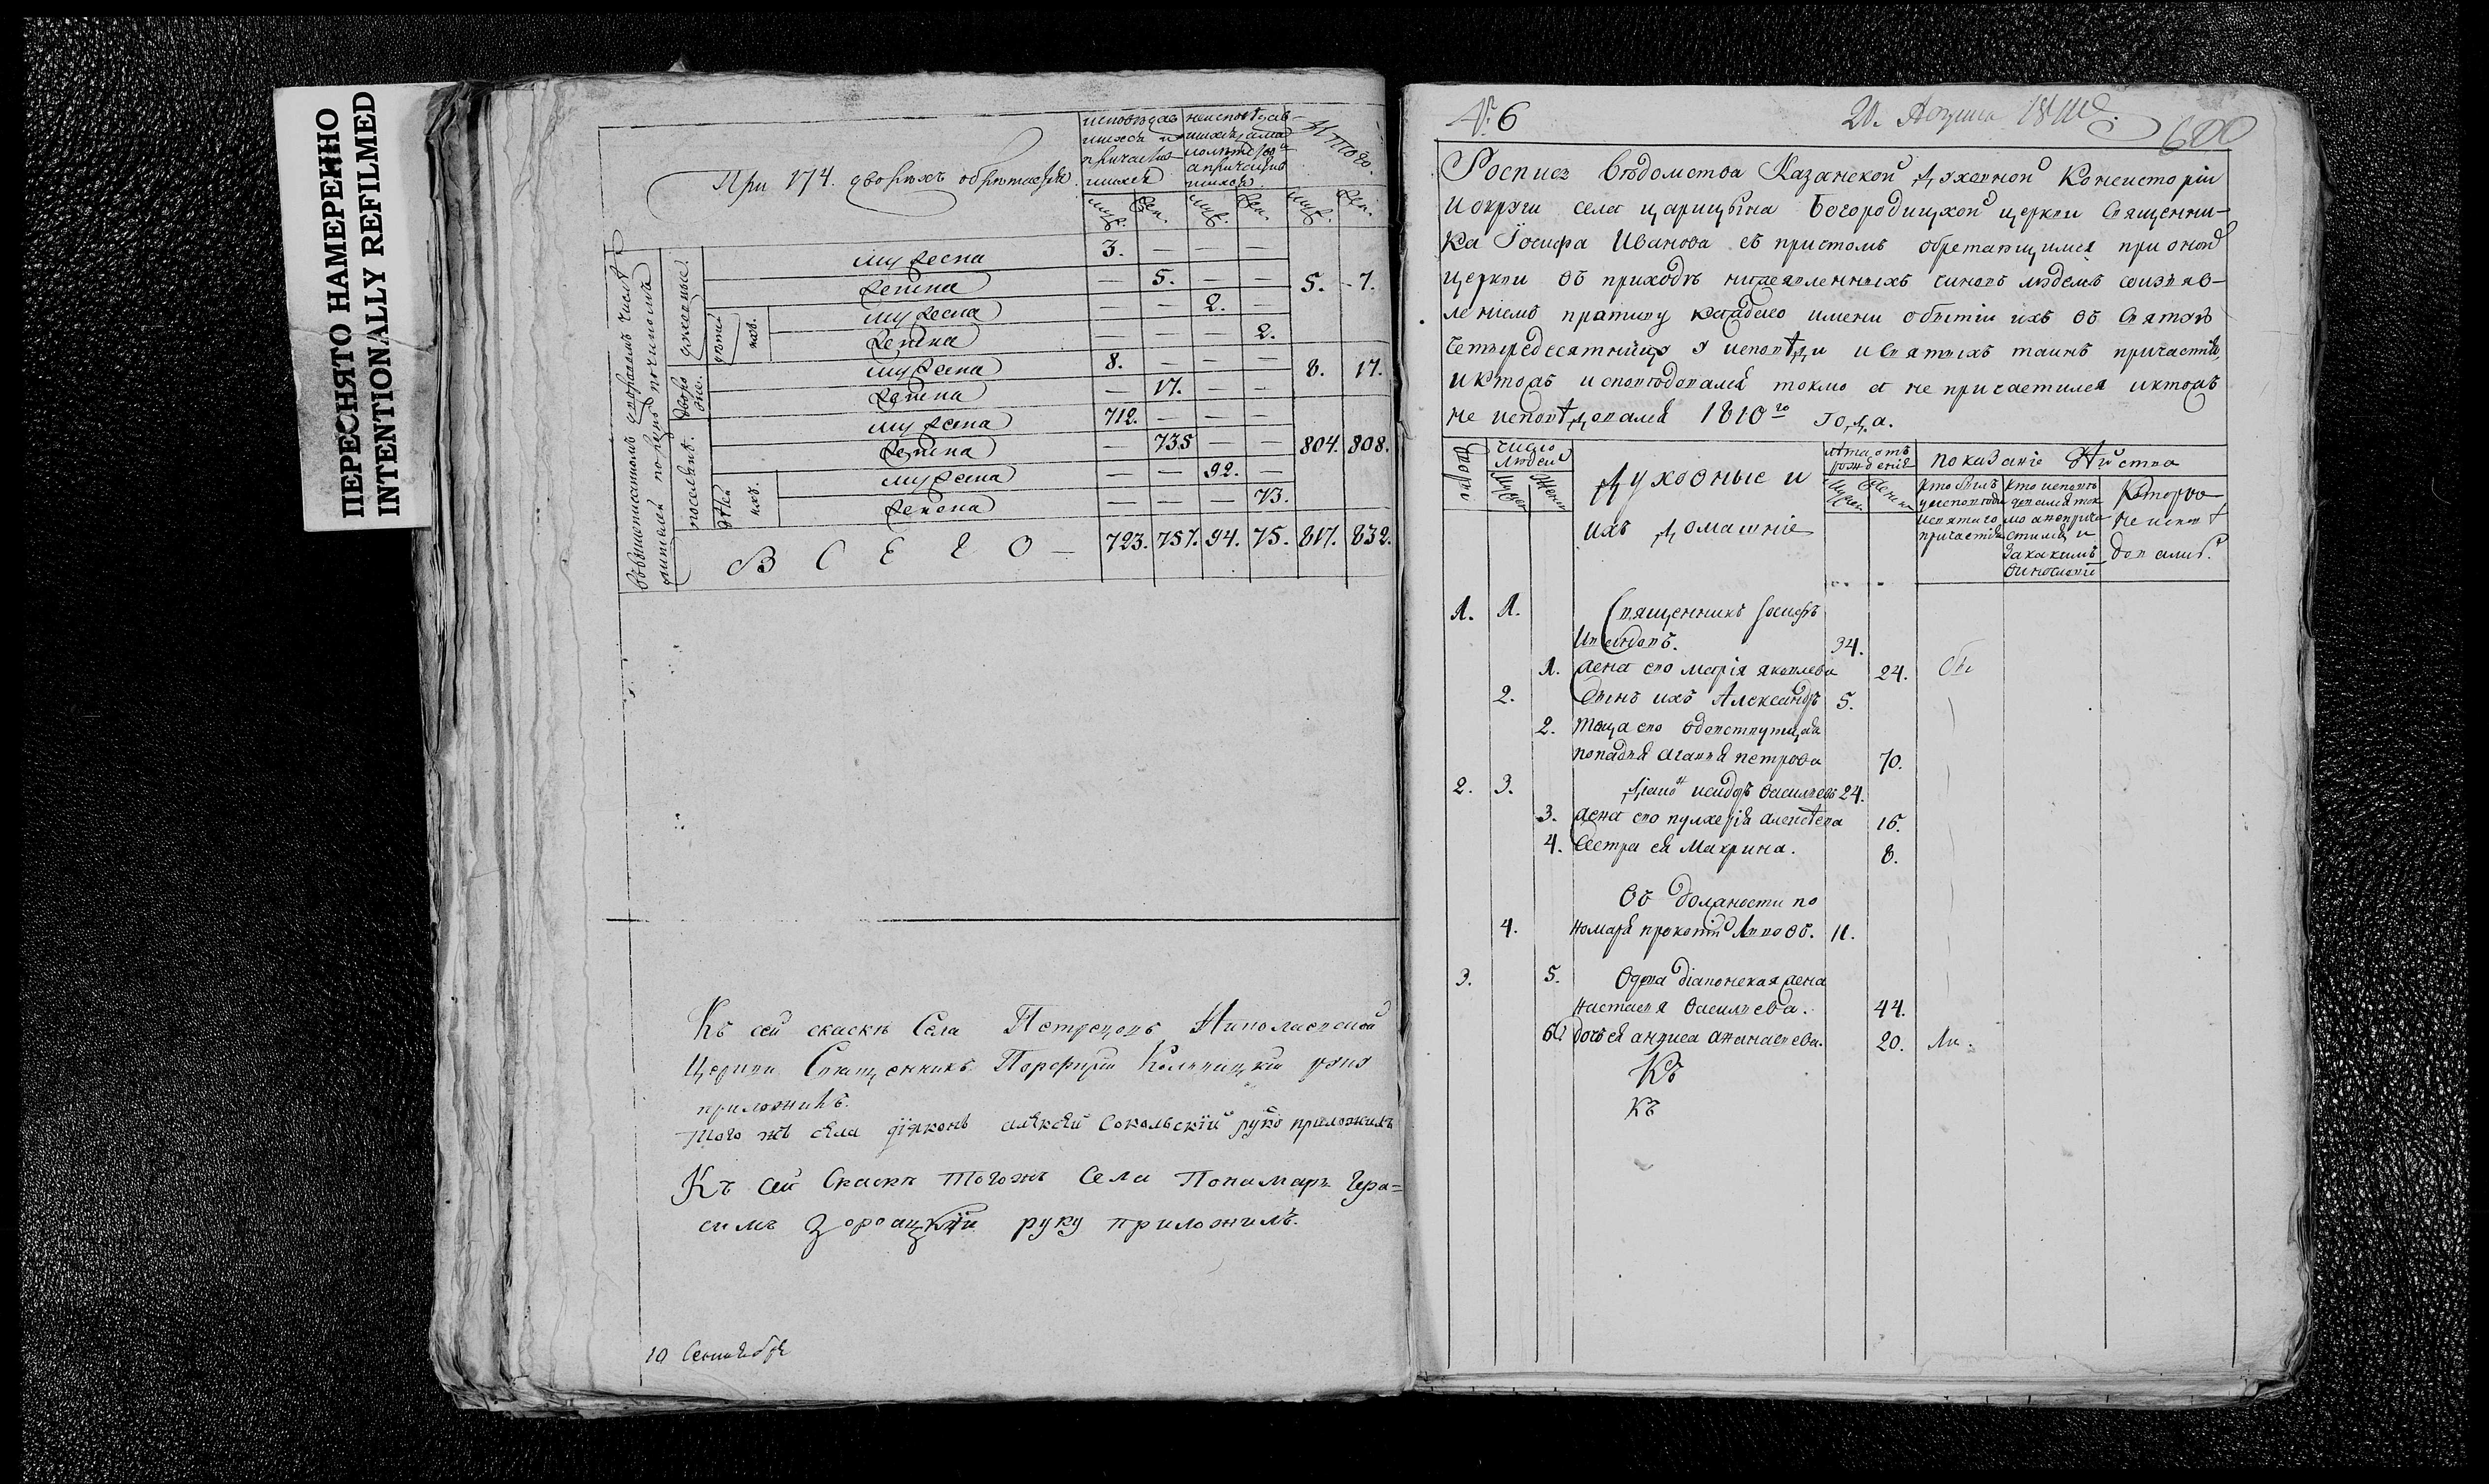 ПЕРЕСНЯТО НАМЕРЕННО
INTENTIONALLY REFILMED
При 174. дворѣхъ обрѣтается
Итого.
муж. жен. муж. жен. муж. жен.
мужеска 3. — — —
женска — 5. — — 5. 7.
мужеска — — 2. —
женска — — — 2.
мужеска 8. — — — 8. 17.
женска — 17. — —
мужеска 712. — — —
женска — 735 — — 804. 808.
мужеска — — 92. —
женска — — — 73.
ВСЕГО — 723. 757. 94. 75. 817. 832.
Къ сей скаскѣ Села
Церкви Священникъ Порфирій руку
приложилъ.
того жъ села діяконъ алѣксѣй Сокольскій руку приложилъ
Къ сей Скаскѣ тогожъ Села Понамарь Гера=
симъ руку приложилъ.
10 Сентября
№ 6
20. 600
Роспись вѣдомства Казанской Духовной Консисторіи
и округи села царицына Богородицкой церкви Священни-
ка Іосифа Иванова съ притчомъ обретающимся при оной
церкви въ приходѣ нижеявленныхъ чиновъ людемъ соизъяв-
леніемъ противу каждаго имени о бытіи ихъ въ Святую
четыредесятницу у исповѣди и Святыхъ таинъ причастія,
и ктожъ исповѣдовался токмо а не причастился и ктожъ
не исповѣдовался 1810го года.
дворы
число людей
Мужеск Женск
Духовные и
ихъ домашніе
лѣта отъ рожденія
показаніе дѣйства
кто былъ
у исповѣди
и святаго
причастія
кто исповѣ
довался ток
мо а не прича
стился и
за какимъ
виносло
Которо
не исповѣ
довались.
1. 1. Священникъ Іосифъ
Ивановъ. 34.
1. жена его марія яковлева 24.
2. Сынъ ихъ Александръ 5.
2. теща его вдовствующая
попадья агафья петрова 70.
2. 3. Діако исидоръ васильевъ 24.
3. жена его пулхерія алексѣева 16.
4. Сестра ея Макрина. 8.
Въ должности по
4. номаря прокопій 11.
3. 5. Вдова діаконская жена
настасья васильева. 44.
6. дочь ея анфиса афанасьева. 20.
Къ
къ